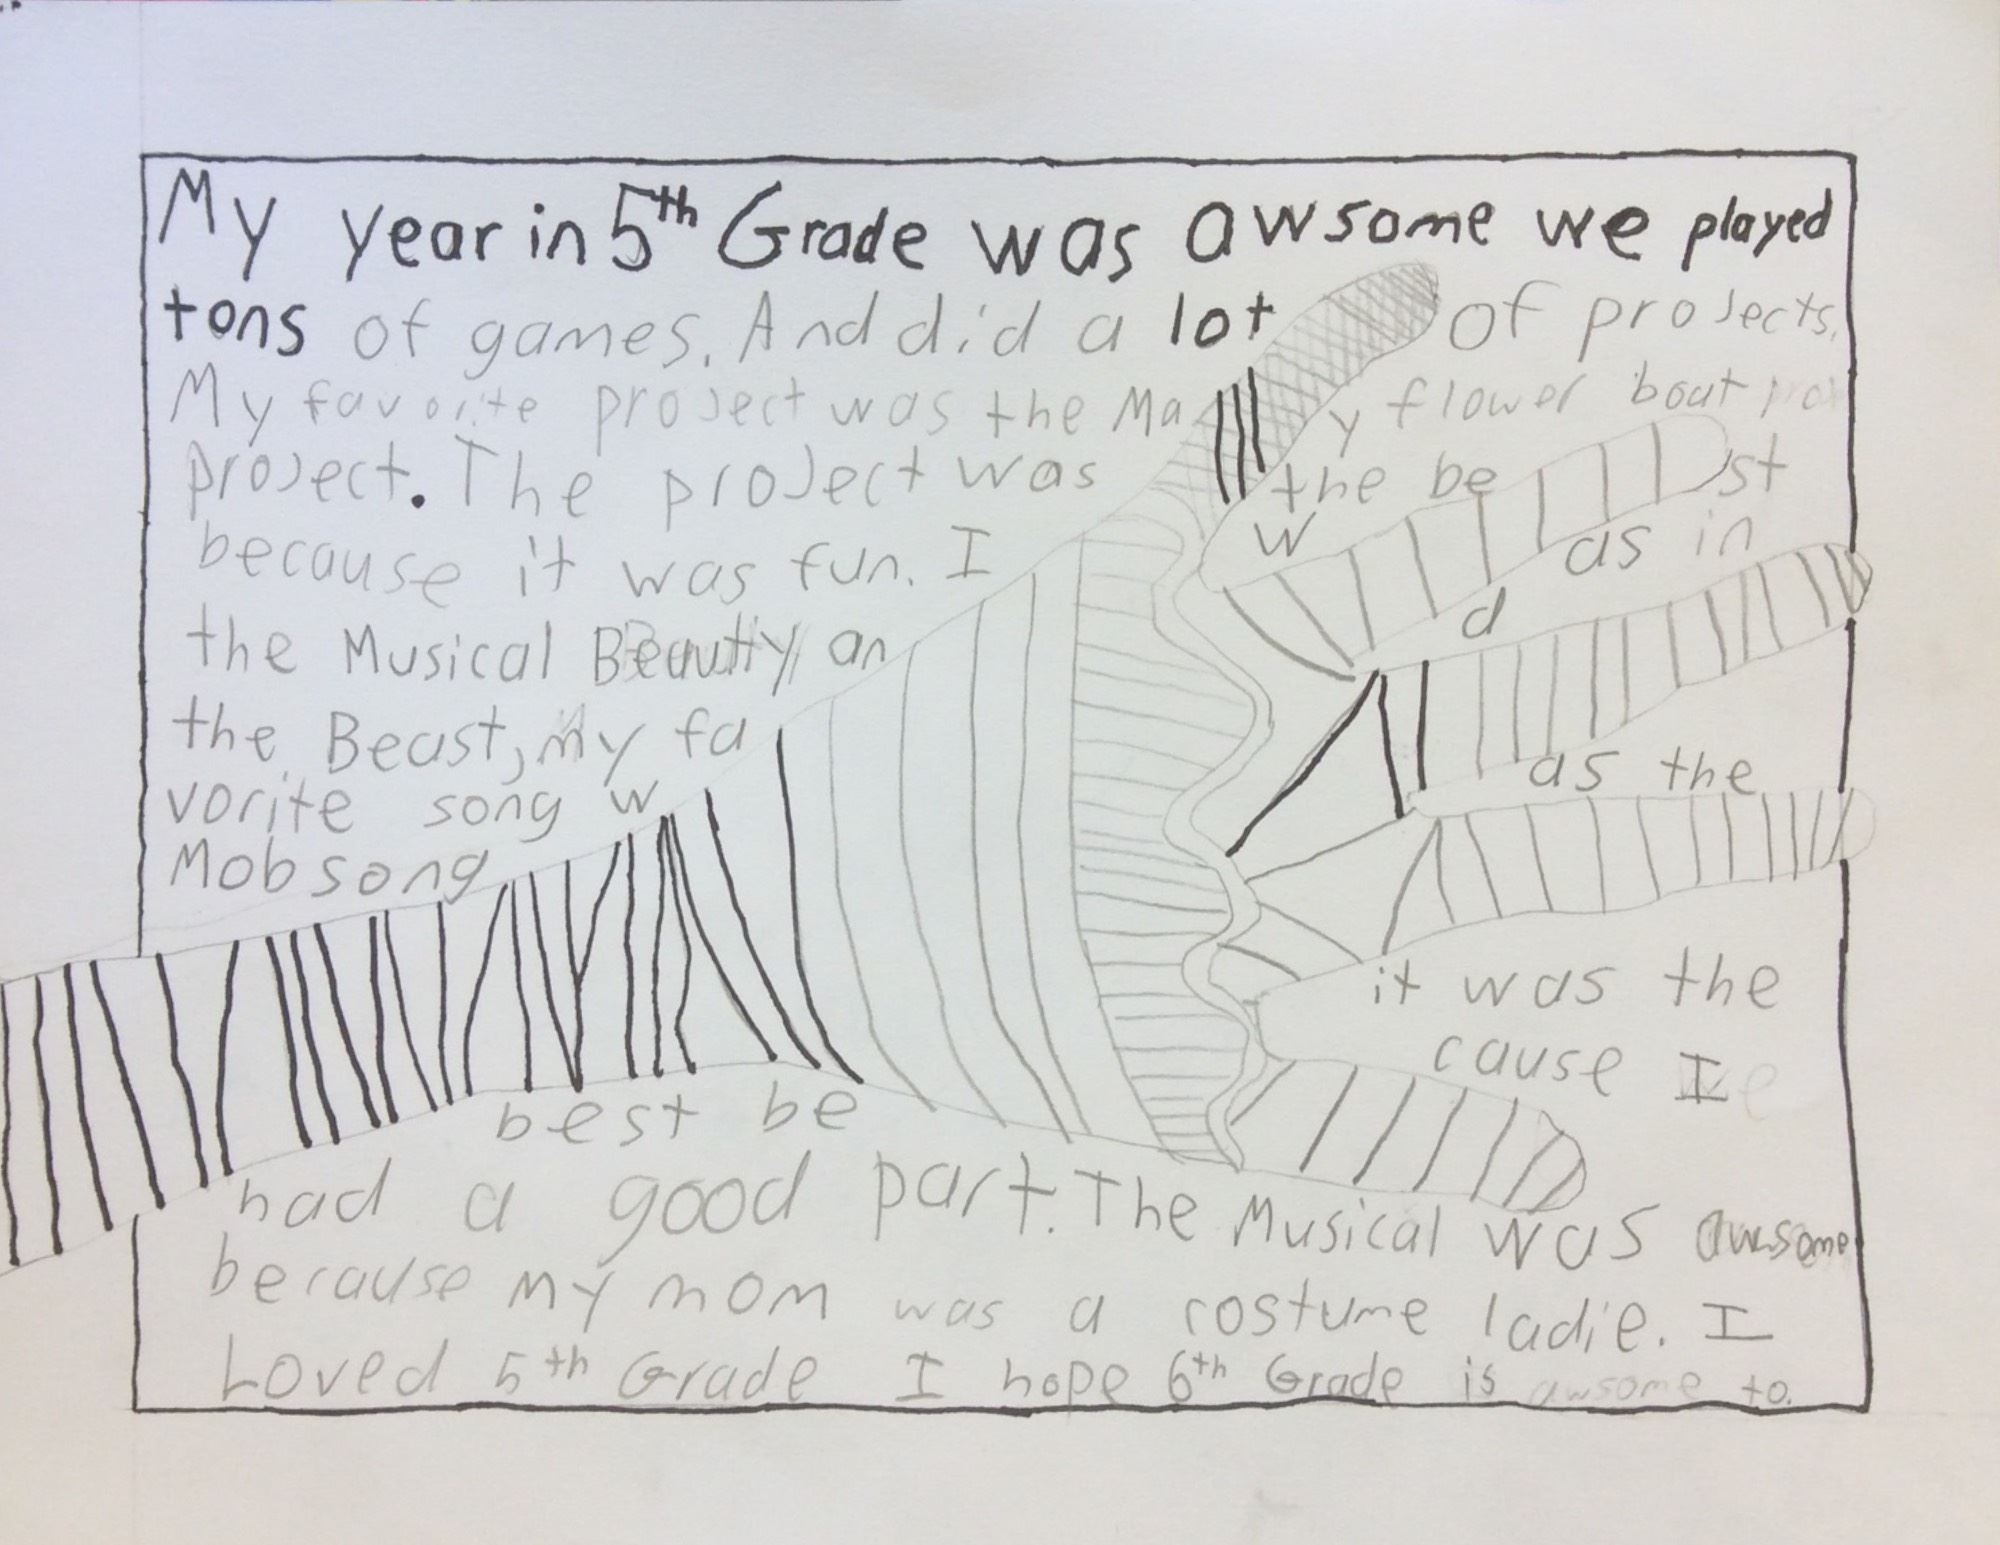 My year in 5th Grade was awsome we played
tons of games. And did a lot of projects.
My favorite project was the Ma y flower boat
project. The project was the be st
because it was fun. I w as in
the Musical Beauty an d
the Beast, my fa
vorite song w as the
Mob song it was the
best be cause I
had a good part. The Musical was awsome
because my mom was a costume ladie. I
Loved 5th Grade I hope 6th Grade is awsome to.